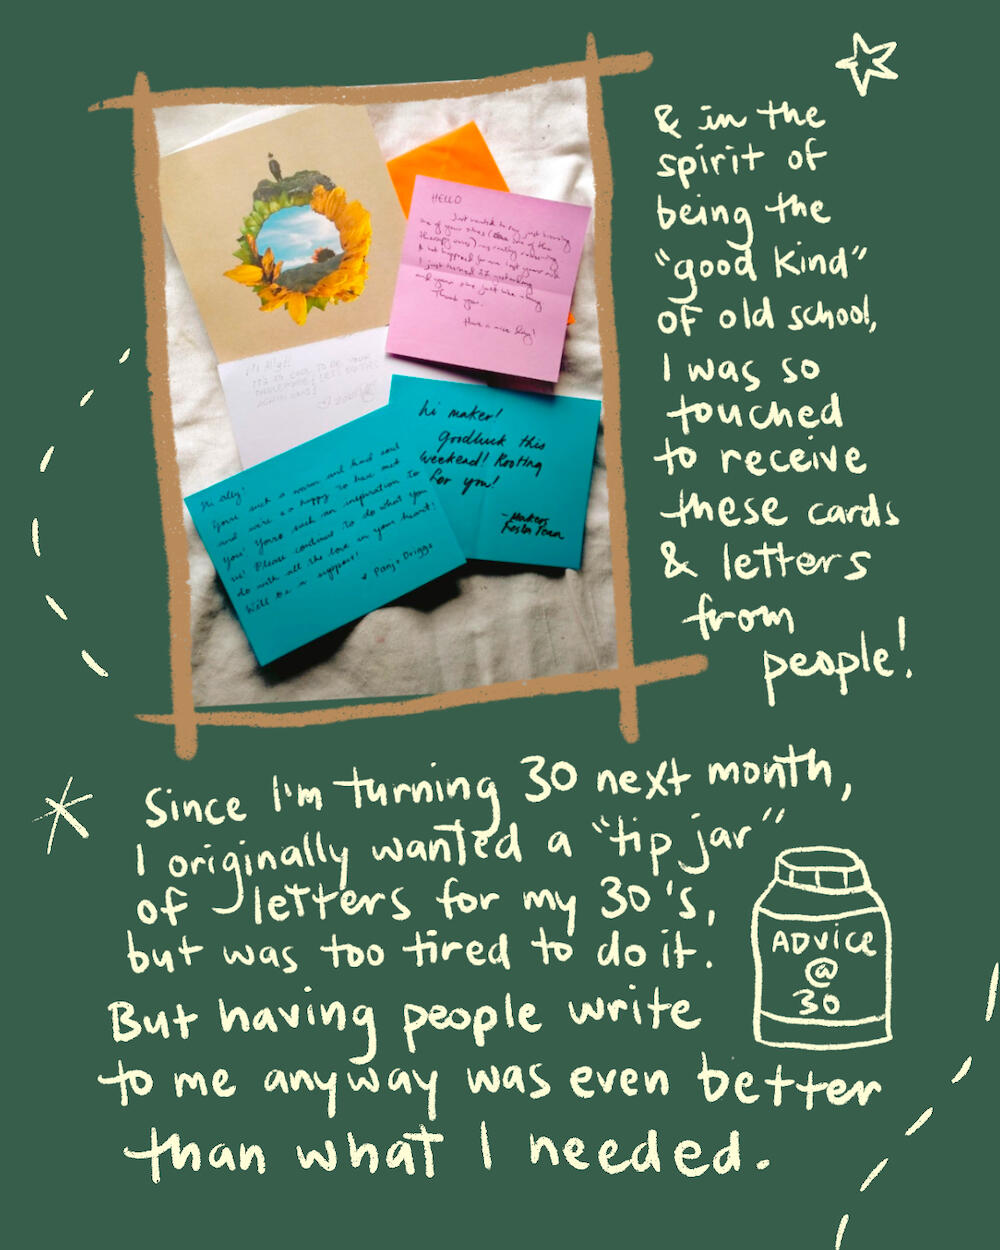 & in the
spirit of
being the
"good kind"
of old school,
I was so
touched
to receive
these cards
& letters
from
people!
HELLO
Just wanted to say, just having
one of your zines (one of the
therapy ones)
I just turned 27 yesterday
and your zine just like
Thank you.
Have a nice day!
Hi Ally!
IT'S SO COOL TO BE YOUR
hi maker!
Goodluck this
weekend! Rooting
for you!
-Makers
Fiesta Team
Hi Ally!
You're such a warm and kind soul
and we're so happy to have met
you! You're such an inspiration to
us! Please continue to do what you
do with all the love in your heart!
We'll be a support!
♥ Panj + Driggs
Since I'm turning 30 next month,
I originally wanted a "tip jar"
of letters for my 30's,
but was too tired to do it!
But having people write
to me anyway was even better
than what I needed.
ADVICE
@
30